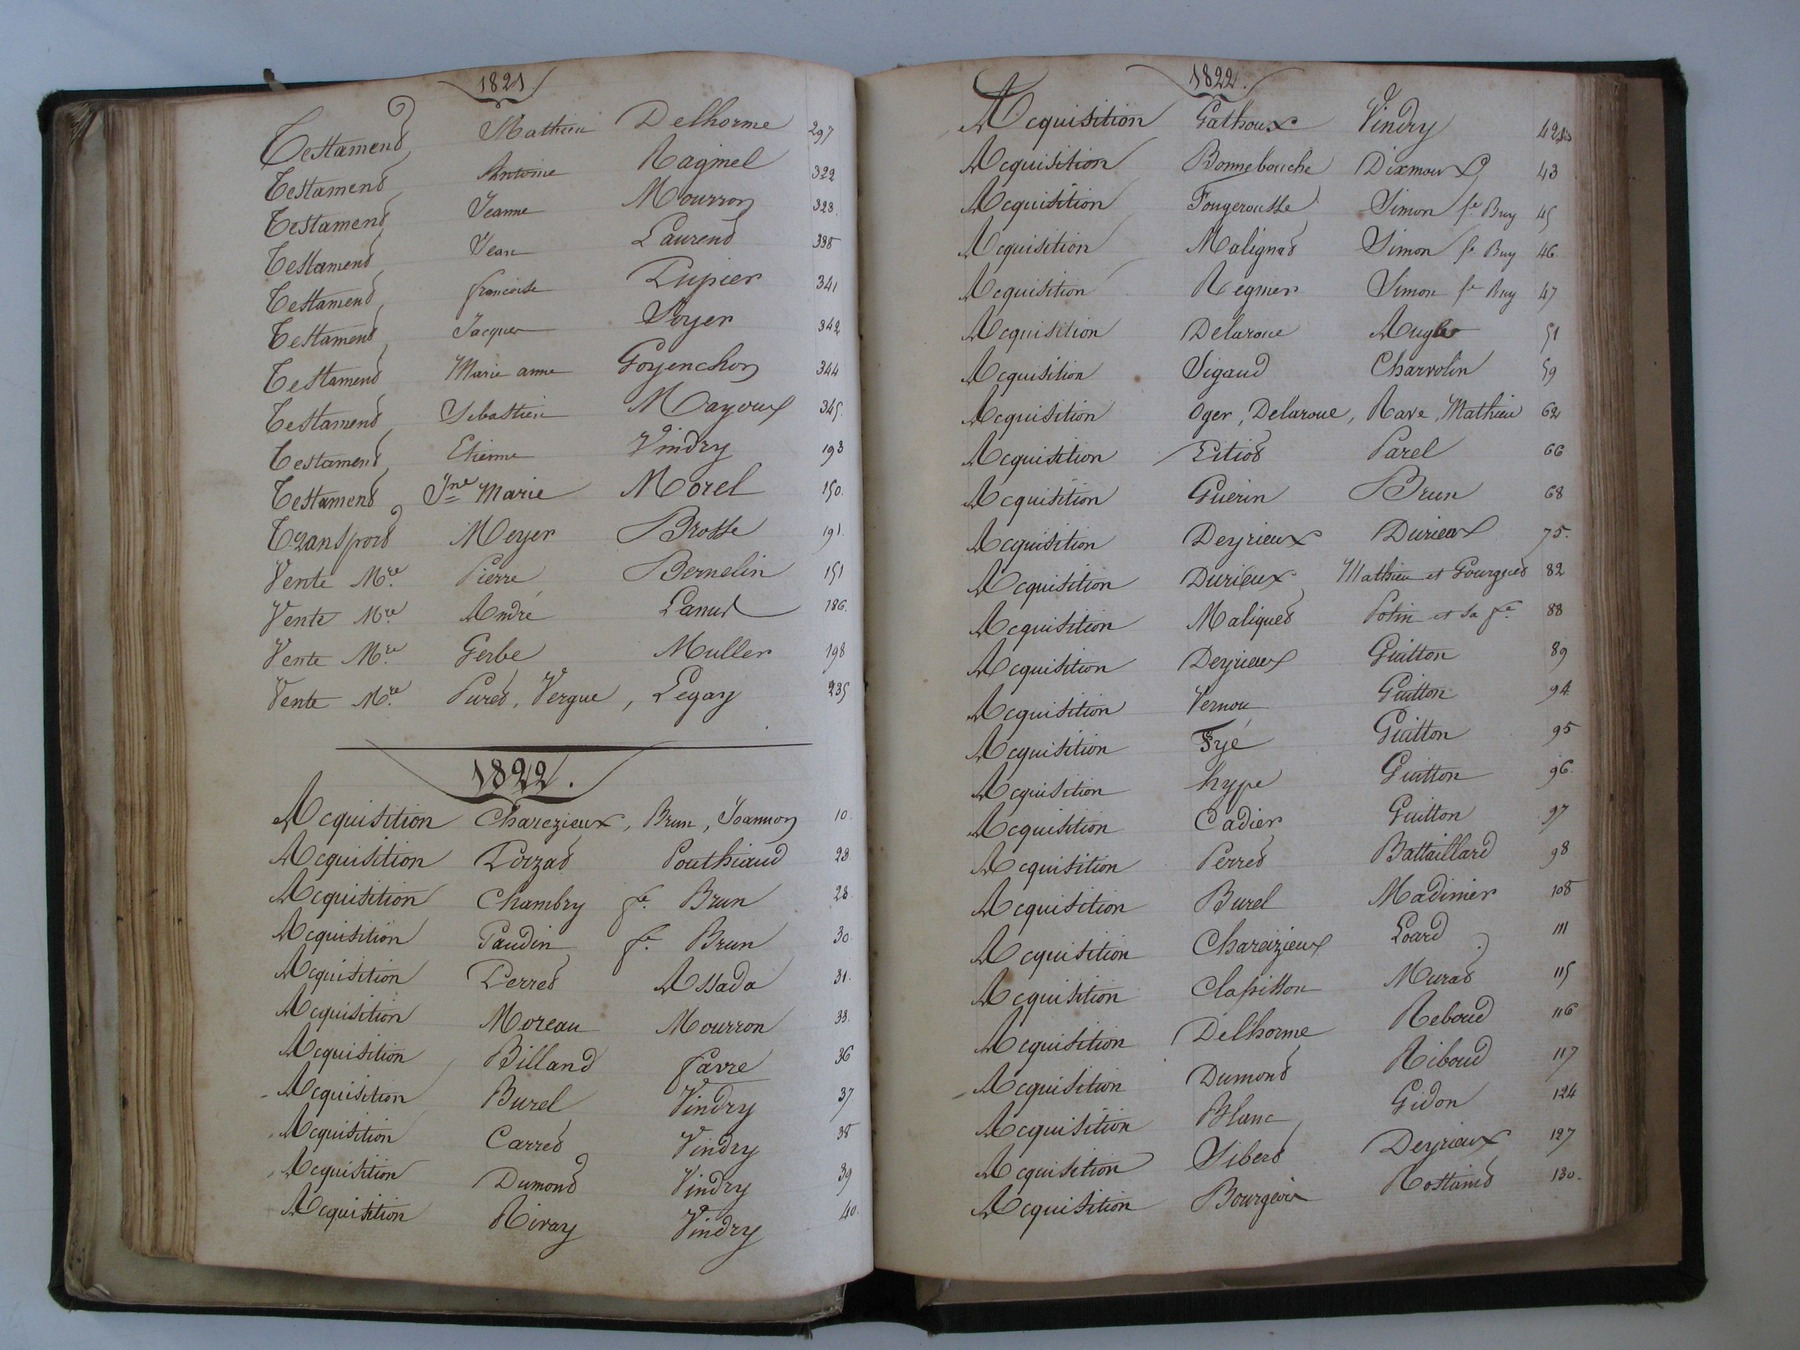 1821
Testament Mathieu Delhorme 297
Testament Antoine Raginel 322
Testament Jeanne Mourron 323.
Testament Jean Laurent 338
Testament françoise Pupier 341
Testament Jacques Soyer 342
Testament Marie anne Goyenchon 344
Testament Sebastien Mayoux 345.
Testament Etienne Vindry 193
Testament Jne Marie Morel 150.
Transport Meyer Brosse 191.
Vente Mre Pierre Bernelin 151
Vente Mre André Lanut 186.
Vente Mre Gerbe Muller 198
Vente Mre Puret, Vergue, Legay 235
1822.
Acquisition Charezieux, Brun, Joannon 10.
Acquisition Poizat Pouthiaud 23.
Acquisition Chambry fe. Brun 28.
Acquisition Gaudin fe. Brun 30
Acquisition Perret Assada 31.
Acquisition Moreau Mourron 33.
Acquisition Billand Favre 36
Acquisition Burel Vindry 37
Acquisition Carret Vindry 38
Acquisition Dumont Vindry 39
Acquisition Rivay Vindry 40.
1822.
Acquisition Gathoux Vindry 42
Acquisition Bonnebouche Dixmoux 43
Acquisition Fougerousse Simon fe Buy 45
Acquisition Malignat Simon fe Buy 46.
Acquisition Regnier Simon fe Buy 47
Acquisition Delaroue 51
Acquisition Sigaud Charvolin 59
Acquisition Oger, Delaroue, Rave, Mathieu 62
Acquisition Titiot Parel 66
Acquisition Guerin Brun 68
Acquisition Deyrieux Durieux 75.
Acquisition Durieux Mathieu et Gourguet 82
Acquisition Maliquet Potin et sa fe 88
Acquisition Deyrieux Guitton 89
Acquisition Vernou Guitton 94
Acquisition Fyé Guitton 95
Acquisition hype Guitton 96.
Acquisition Cadier Guitton 97
Acquisition Perret Battaillard 98
Acquisition Burel Madinier 108
Acquisition Chareizieux Loard 111
Acquisition Classisson Murat 115
Acquisition Delhorme Reboud 116
Acquisition Dumont Riboud 117
Acquisition Blanc Gidon 124
Acquisition Sibert Deyrieux 127
Acquisition Bourgeois Rostaind 130.